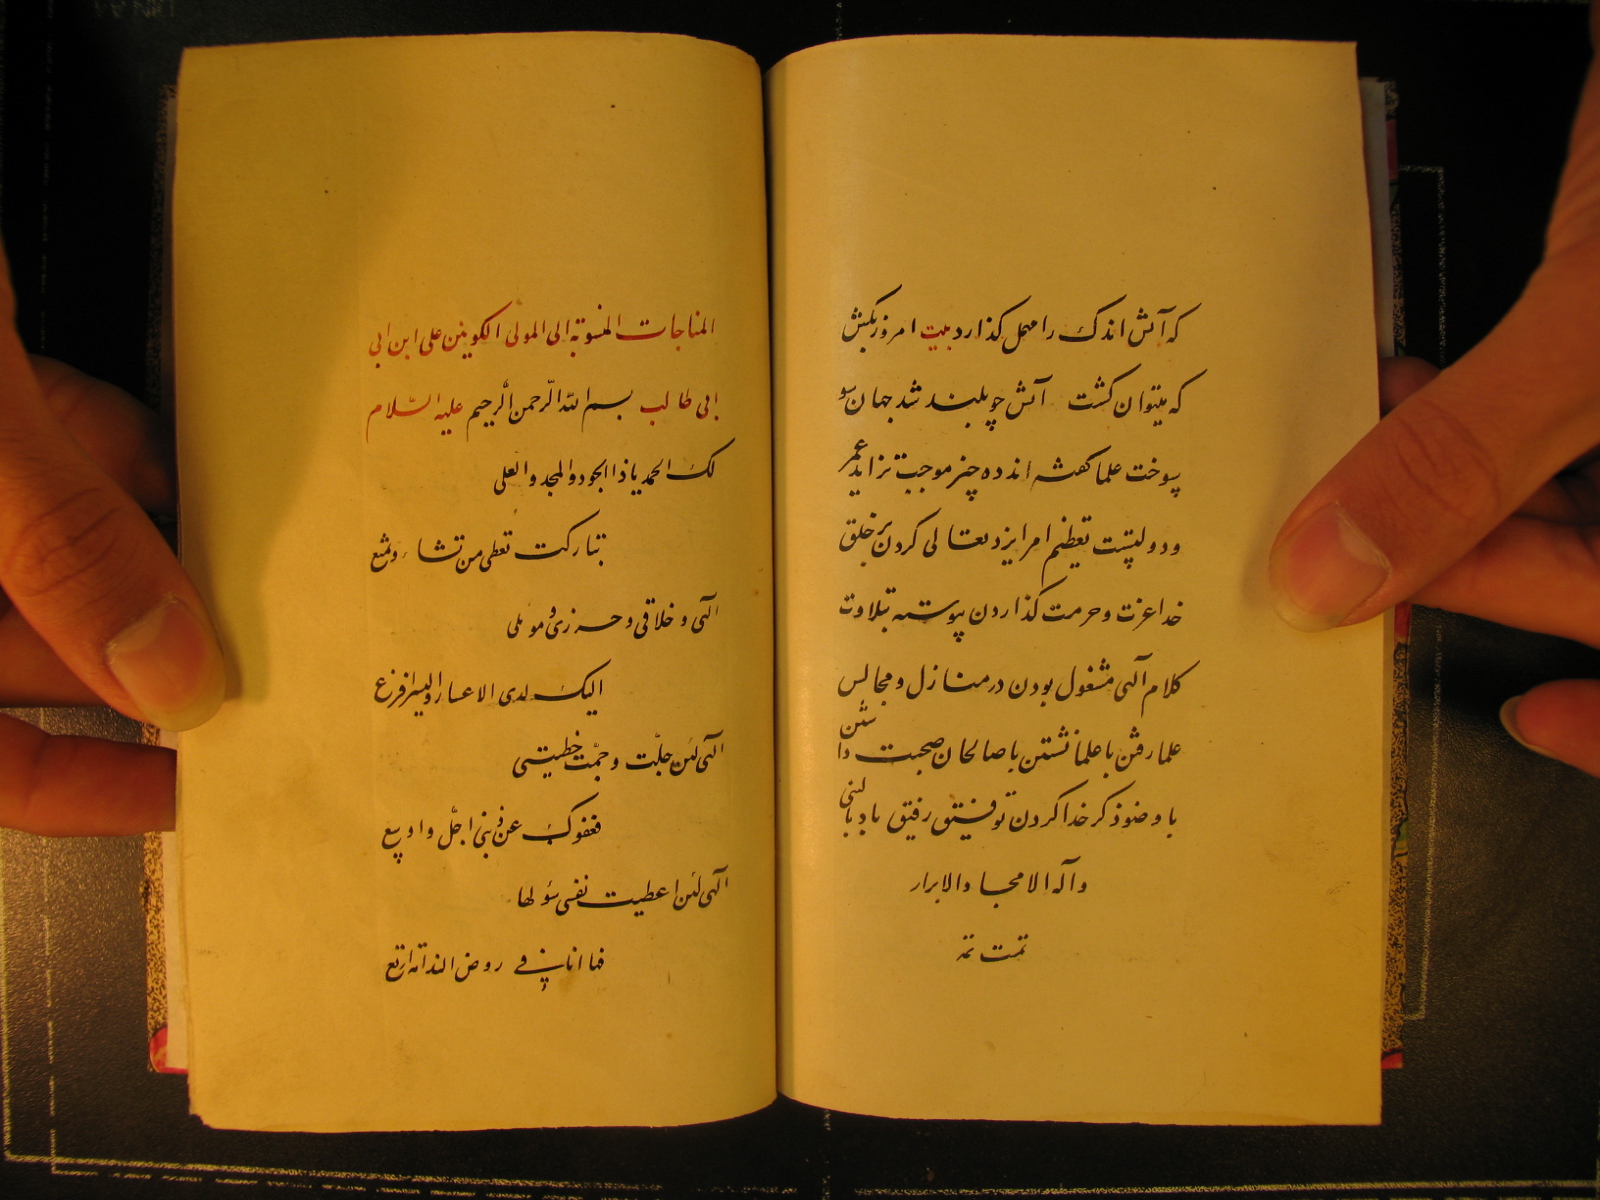 که آتش اندک را مهمل گذارد بیت امروز بکش
که میتوان کشت آتش چو بلند شد جهان سو
سوخت علما گفته اند ده چیز موجب تزاید عمر
و دولتست تعظیم امر ایزد تعالی کردن بر خلق
خدا عزت و حرمت گذاردن پیوسته بتلاوت
کلام آلهی مشغول بودن در منازل و مجالس
علما رفتن با علما نشستن با صالحان صحبت داشتن
با وضو ذکر خدا کردن توفیق رفیق باد بالنبی
و آله الامجاد والابرار
تمت تمه
المناجات المنسوبة الی المولی الکونین علی ابن ابی
ابی طالب بسم الله الرحمن الرحیم علیه السلام
لک الحمد یا ذا الجود والمجد والعلی
تبارکت تعطی من تشاء وتمنع
الهی و خلاقی و حرزی و موئلی
الیک لدی الاعسار والیسر افزع
الهی لئن جلّت و جمّت خطیتی
فعفوک عن ذنبی اجلّ و اوسع
الهی لئن اعطیت نفسی سؤلها
فها انا فی روض الندامة ارتع